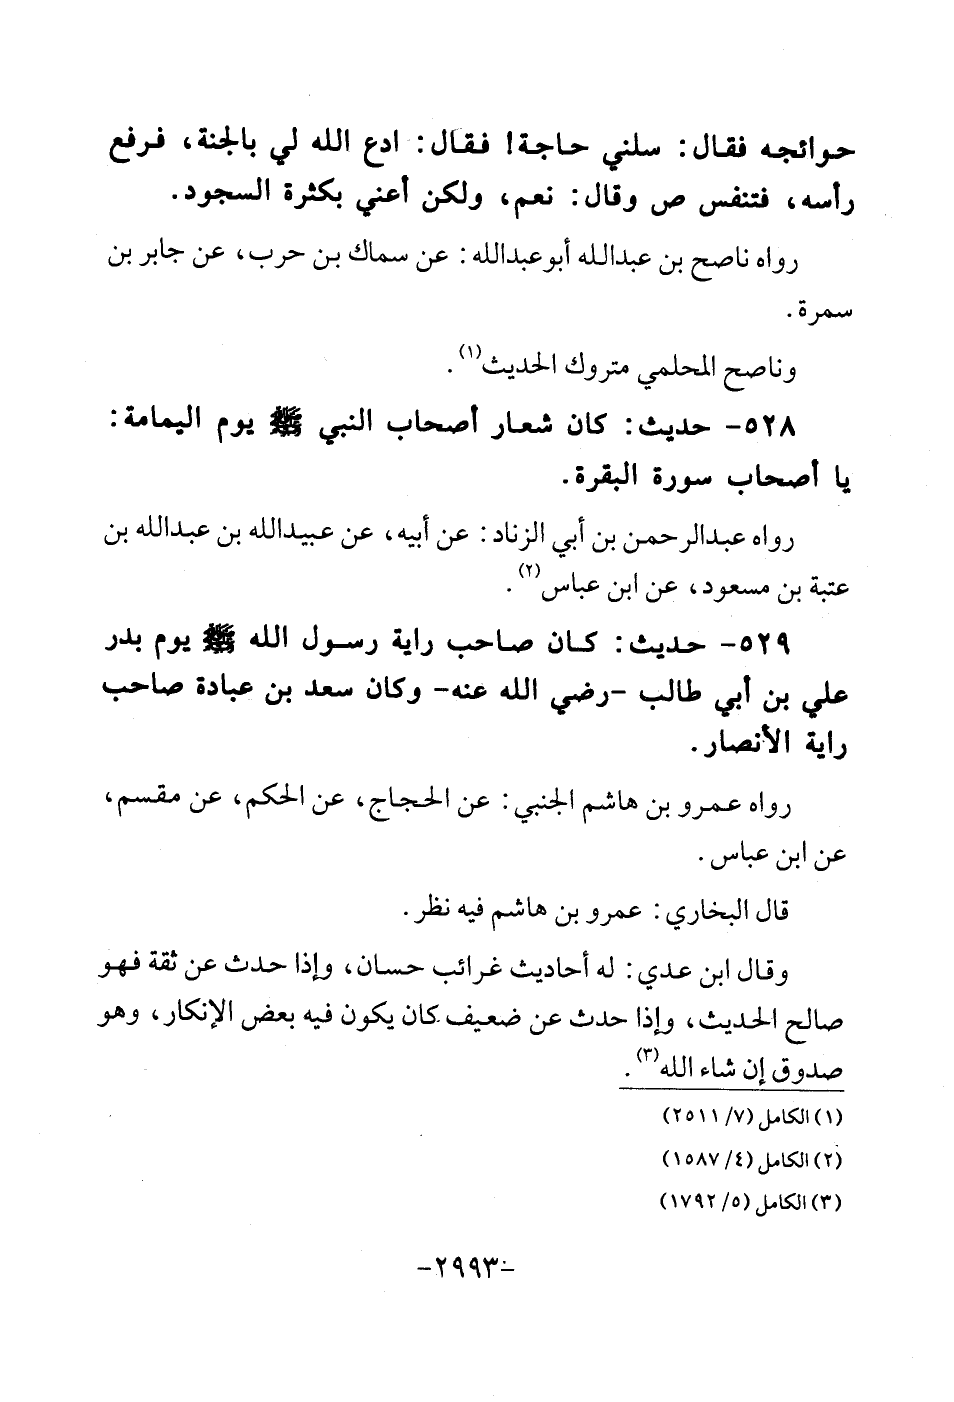 حوائجه فقال: سلني حاجة! فقال: ادع الله لي بالجنة، فرفع
رأسه، فتنفس ص وقال: نعم، ولكن أعني بكثرة السجود.
رواه ناصح بن عبدالله أبوعبدالله: عن سماك بن حرب، عن جابر بن
سمرة.
وناصح المحلمي متروك الحديث(١).
٥٢٨- حديث: كان شعار أصحاب النبي ﷺ يوم اليمامة:
يا أصحاب سورة البقرة.
رواه عبدالرحمن بن أبي الزناد: عن أبيه، عن عبيدالله بن عبدالله بن
عتبة بن مسعود، عن ابن عباس(٢).
٥٢٩- حديث: كان صاحب راية رسول الله ﷺ يوم بدر
علي بن أبي طالب -رضي الله عنه- وكان سعد بن عبادة صاحب
راية الأنصار.
رواه عمرو بن هاشم الجنبي: عن الحجاج، عن الحكم، عن مقسم،
عن ابن عباس.
قال البخاري: عمرو بن هاشم فيه نظر.
وقال ابن عدي: له أحاديث غرائب حسان، وإذا حدث عن ثقة فهو
صالح الحديث، وإذا حدث عن ضعيف كان يكون فيه بعض الإنكار، وهو
صدوق إن شاء الله(٣).
(١) الكامل (٧/ ٢٥١١)
(٢) الكامل (٤/ ١٥٨٧)
(٣) الكامل (٥/ ١٧٩٢)
-٢٩٩٣-